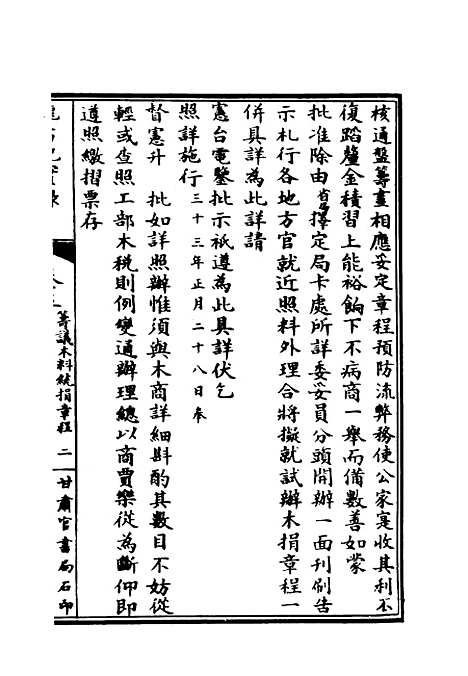 核通盤籌畫相應妥定章程預防流弊務使公家寔收其利不
復蹈釐金積習上能裕餉下不病商一舉而備數善如蒙
批准除由省局擇定局卡處所詳委妥員分頭開辦一面刊刷告
示札行各地方官就近照料外理合將擬就試辦木捐章程一
併具詳為此詳請
憲台電鑒批示祇遵為此具詳伏乞
照詳施行三十三年正月二十八日奉
督憲升　批如詳照辦惟須與木商詳細斟酌其數目不妨從
輕或查照工部木稅則例變通辦理總以商賈樂從為斷仰即
遵照繳摺票存
籌議木料統捐章程　二　甘肅官書局石印